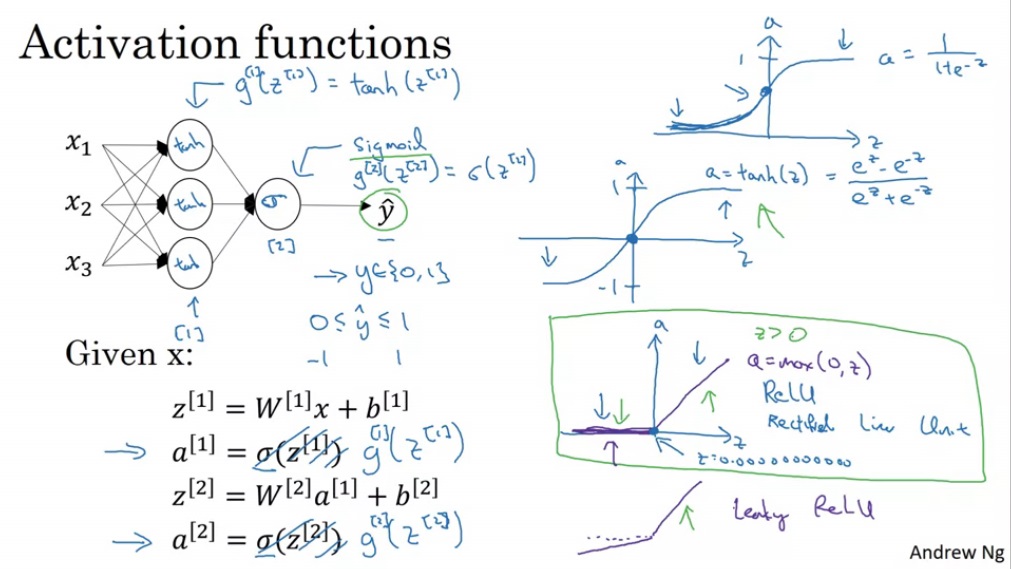 Activation functions
g^[1](z^[1]) = tanh(z^[1])
x₁
x₂
x₃
tanh
tanh
tanh
[1]
sigmoid
g^[2](z^[2]) = σ(z^[2])
σ
[2]
ŷ
→ y∈{0,1}
0 ≤ ŷ ≤ 1
-1 1
Given x:
z^[1] = W^[1]x + b^[1]
→ a^[1] = σ(z^[1]) g^[1](z^[1])
z^[2] = W^[2]a^[1] + b^[2]
→ a^[2] = σ(z^[2]) g^[2](z^[2])
a
1
z
a = 1/(1+e^-z)
a
1
-1
z
a = tanh(z) = (e^z - e^-z)/(e^z + e^-z)
a
z
z>0
a = max(0,z)
ReLU
Rectified Linear Unit
z=0.000000000000
Leaky ReLU
Andrew Ng